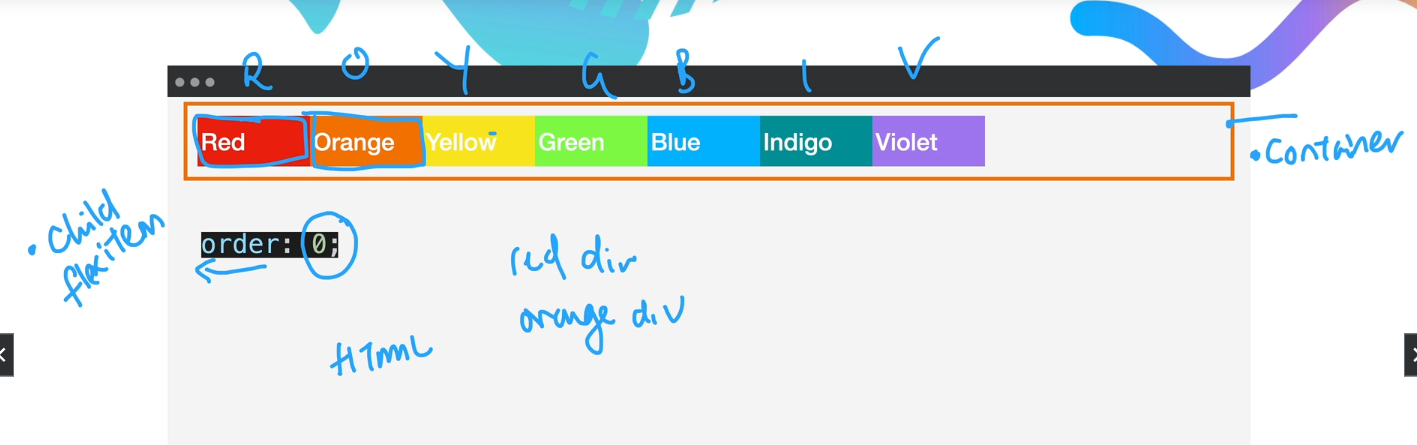 R O Y G B I V
Red Orange Yellow Green Blue Indigo Violet
• Container
• Child
flexitem
order: 0;
red div
orange div
HTML